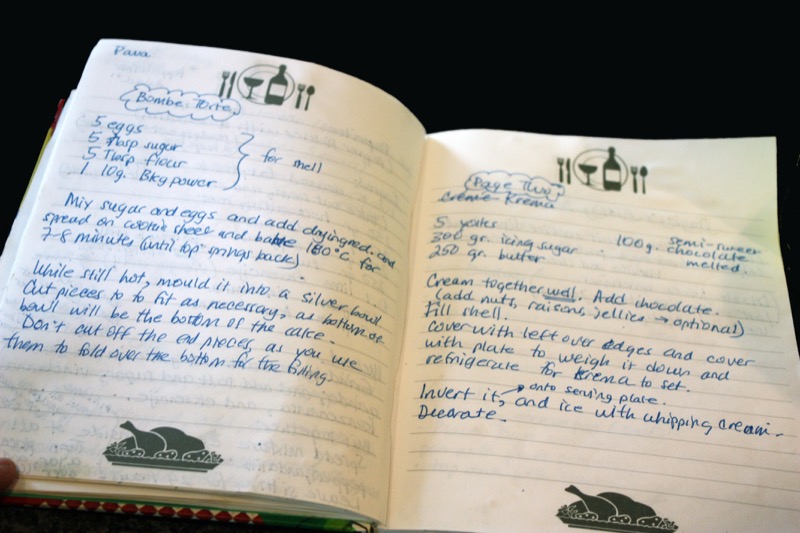 Pava
Bombe Torte
5 eggs
5 Tbsp sugar
5 Tbsp flour
1 10g. Bkg power
for shell
Mix sugar and eggs and add dry ingred. and
spread on cookie sheet and bake 180°C for
7-8 minutes (until top springs back)
While still hot, mould it into a silver bowl.
Cut pieces to to fit as necessary, as bottom of
bowl will be the bottom of the cake.
Don't cut off the end pieces, as you use
them to fold over the bottom for the filling.
Page Two
Creme Krema
5 yolks
300 gr. icing sugar
250 gr. butter
100g. semi-sweet
chocolate
melted.
Cream together well. Add chocolate.
(add nuts, raisons, jellies → optional)
Fill shell.
Cover with left over edges and cover
with plate to weigh it down and
refrigerate for Krema to set.
Invert it, onto serving plate.
and ice with whipping cream.
Decorate.